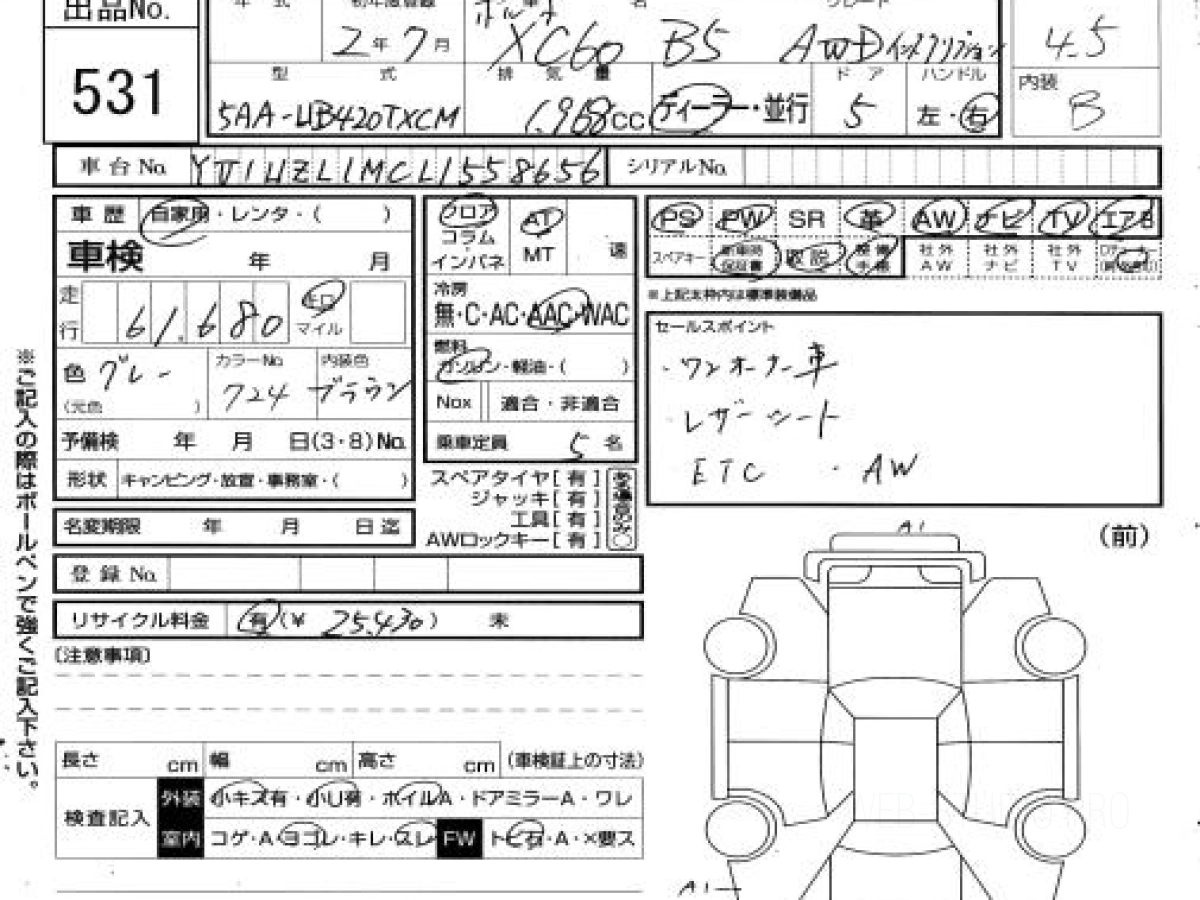 出品No.
531
年 式
初年度登録
車 名
グレード
2年7月
XC60 B5 AWD インスクリプション
4.5
型 式
排 気 量
ドア
ハンドル
内装
5AA-UB420TXCM
1.968cc
ディーラー・並行
5
左・右
B
車台No.
YV1UZL1MCL1558656
シリアルNo.
車 歴
自家用・レンタ・( )
車検 年 月
走行
61.680
キロ
マイル
色 グレー
(元色 )
カラーNo.
724
内装色
ブラウン
予備検 年 月 日(3・8)No.
形状 キャンピング・放宣・事務室・( )
名変期限 年 月 日迄
登録No.
リサイクル料金 有(¥ 25.430) 未
〔注意事項〕
フロア
コラム
インパネ
AT
MT
速
冷房
無・C・AC・AAC・WAC
燃料
ガソリン・軽油・( )
Nox 適合・非適合
乗車定員 5名
スペアタイヤ[有]
ジャッキ[有]
工具[有]
AWロックキー[有]
ある場合のみ○
PS PW SR 革 AW ナビ TV エアB
スペアキー
新車時保証書
取説
整備手帳
社外AW
社外ナビ
社外TV
※上記太枠内は標準装備品
セールスポイント
・ワンオーナー車
・レザーシート
ETC ・AW
(前)
A1
長さ cm 幅 cm 高さ cm (車検証上の寸法)
検査記入
外装 小キズ有・小U有・ホイルA・ドアミラーA・ワレ
室内 コゲ・A・ヨゴレ・キレ・スレ FW トビ石・A・×要ス
A1
※ご記入の際はボールペンで強くご記入下さい。